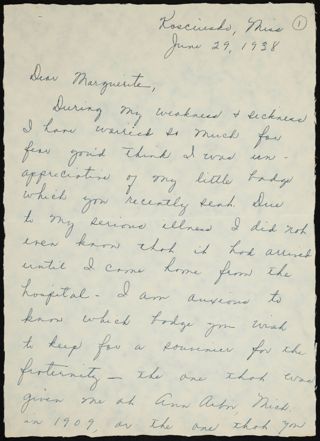 Kosciusko, Miss ①
June 29, 1938
Dear Marguerite,
During my weakness & sickness
I have worried so much for
fear you'd think I was un-
appreciative of my little badge
which you recently sent. Due
to my serious illness I did not
even know that it had arrived
until I came home from the
hospital - I am anxious to
know which badge you wish
to keep for a souvenir for the
fraternity - the one that was
given me at Ann Arbor Mich.
in 1909, or the one that you